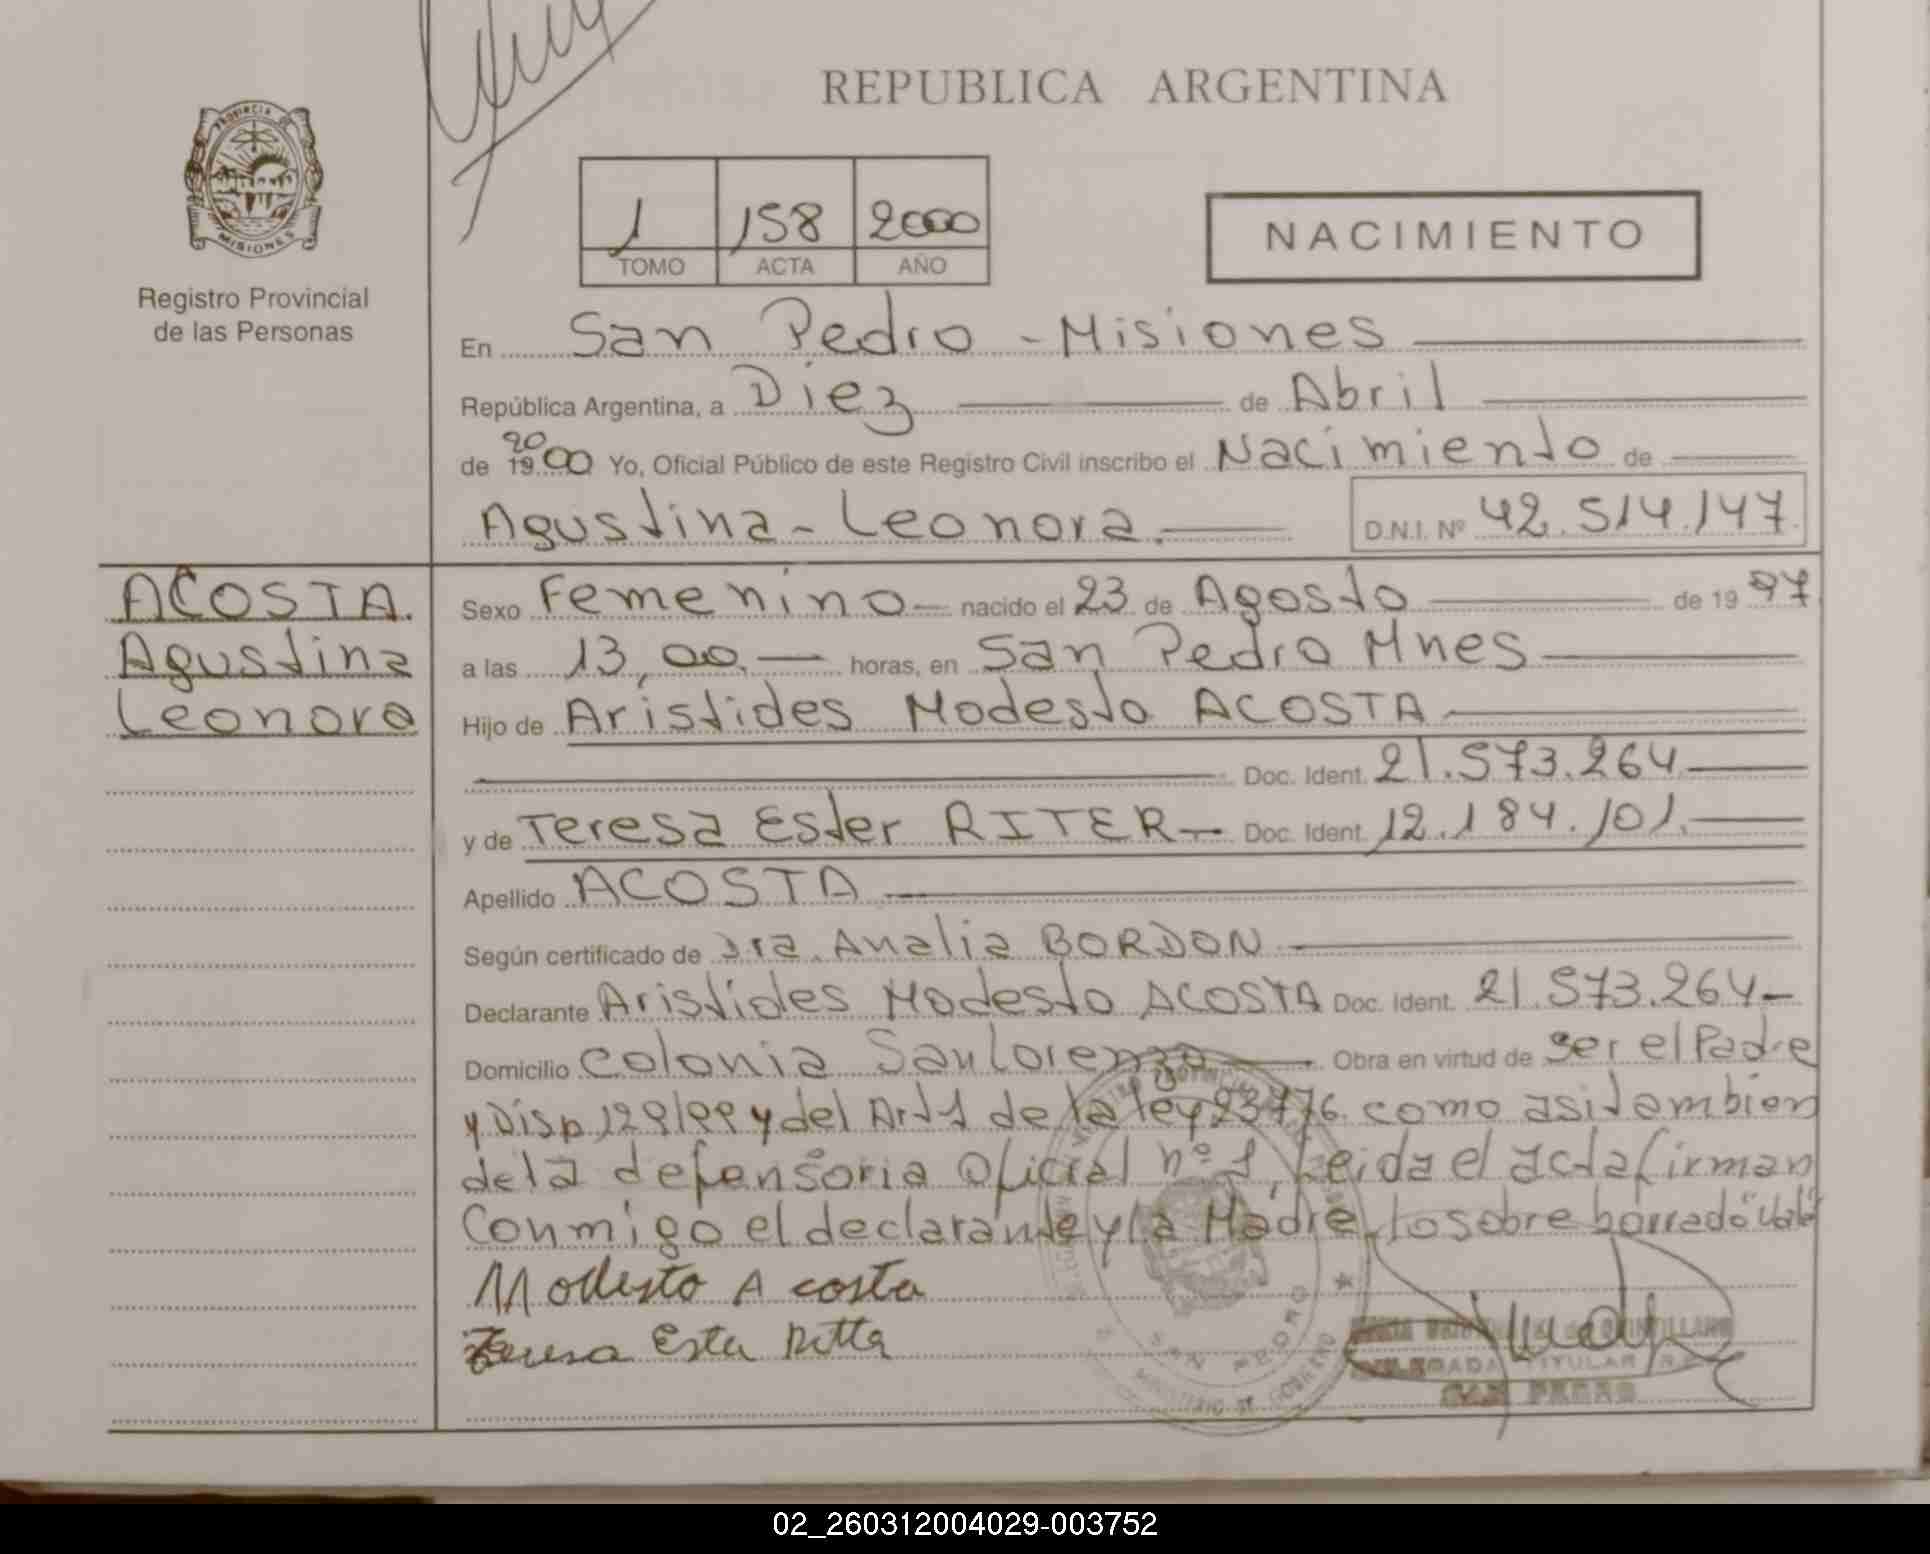 REPUBLICA ARGENTINA
PROVINCIA DE
MISIONES
Registro Provincial
de las Personas
1 158 2000
TOMO ACTA AÑO
NACIMIENTO
En San Pedro - Misiones
República Argentina, a Diez de Abril
20
de 19 00 Yo, Oficial Público de este Registro Civil inscribo el Nacimiento de
Agustina - Leonora. D.N.I. Nº 42.514.147
ACOSTA.
Agustina
Leonora
Sexo Femenino nacido el 23 de Agosto de 19 97
a las 13,00 horas, en San Pedro Mnes
Hijo de Aristides Modesto ACOSTA
Doc. Ident. 21.573.264
y de Teresa Ester RITER Doc. Ident. 12.184.101.
Apellido ACOSTA
Según certificado de Dra. Analia BORDON
Declarante Aristides Modesto ACOSTA Doc. Ident. 21.573.264
Domicilio Colonia San Lorenzo Obra en virtud de ser el Padre
y Disp 129/99 y del Art 1 de la ley 23776. como asi tambien
de la defensoria Oficial nº 1, Leida el acta firman
Conmigo el declarante y la Madre, lo sobre borrado "Vale"
Modesto Acosta
Teresa Ester Ritter
SAN PEDRO
MINISTERIO DE GOBIERNO
DELEGADA TITULAR
SAN PEDRO
02_260312004029-003752